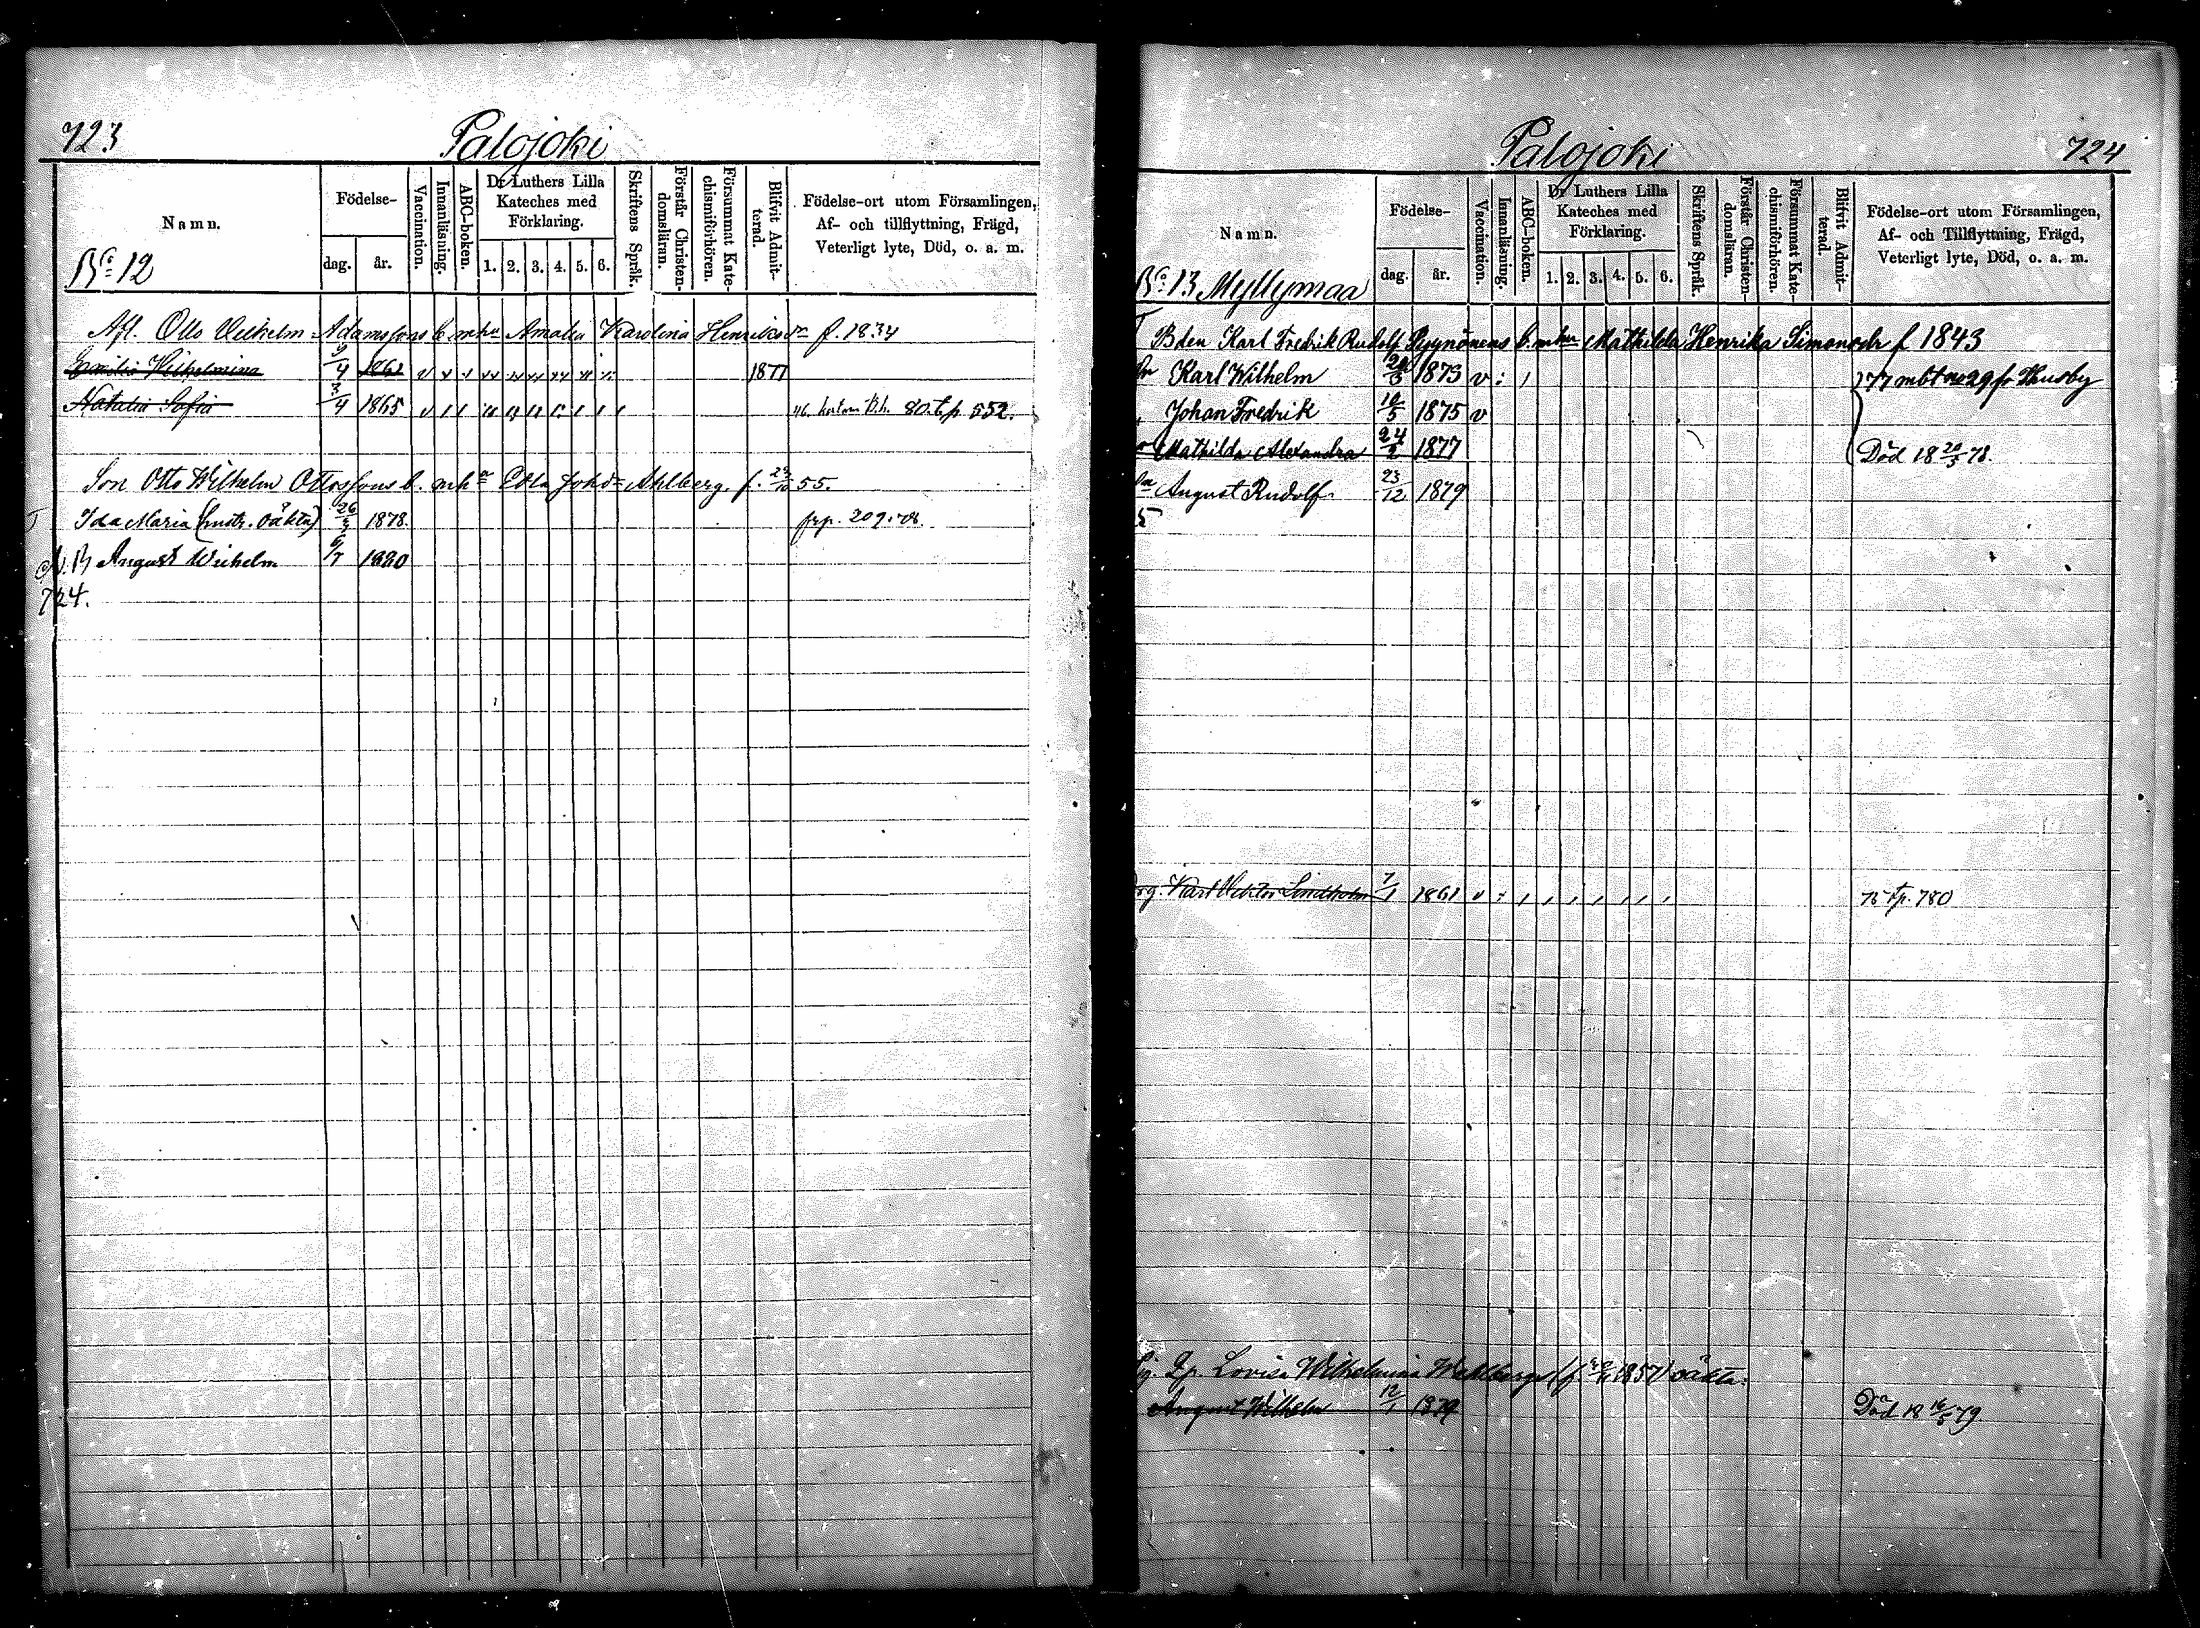 723
Palojoki
Namn.
Födelse-
dag.
år.
Vaccination.
Innanläsning.
ABC-boken.
Dr Luthers Lilla
Kateches med
Förklaring.
1. 2. 3. 4. 5. 6.
Skriftens Språk.
Förstår Christen-
domsläran.
Försummat Kate-
chismiförhören.
Blifvit Admit-
terad.
Födelse-ort utom Församlingen,
Af- och tillflyttning, Frägd,
Veterligt lyte, Död, o. a. m.
No 12
Afl. Otto Wilhelm Adamssons b. m hu Amalia Karolina Henriksdr f. 1834
Emilia Wilhelmina 9/4 1861 1877
Natalia Sofia 3/4 1865 80. t. p. 552.
Son Otto Wilhelm Ottossons b. mha Edla Johds Ahlberg f. 55.
Ida Maria oäkta) 1878. frp. 209
N. B August Wilhelm 6/7 1880
724.
Palojoki
724
Namn.
Födelse-
dag.
år.
Vaccination.
Innanläsning.
ABC-boken.
Dr Luthers Lilla
Kateches med
Förklaring.
1. 2. 3. 4. 5. 6.
Skriftens Språk.
Förstår Christen-
domsläran.
Försummat Kate-
chismiförhören.
Blifvit Admit-
terad.
Födelse-ort utom Församlingen,
Af- och Tillflyttning, Frägd,
Veterligt lyte, Död, o. a. m.
No 13 Myllymaa
Bden Karl Fredrik Rudolf b. m hu Mathilda Henrika Simonsdr f 1843
Karl Wilhelm 1873 v 77 mbt no 29 fr Thusby
Johan Fredrik 10/5 1875 v
Mathilda Alexandra 24/2 1877 Död 18 20/3 78.
August Rudolf 23/12 1879
Karl Viktor Lindholm 7/1 1861 v 75 t. p. 780
Lovisa Wilhelmina Wahlbergs 1857) oäkta:
August Wilhelm 12/1 1879 Död 18 16/5 79